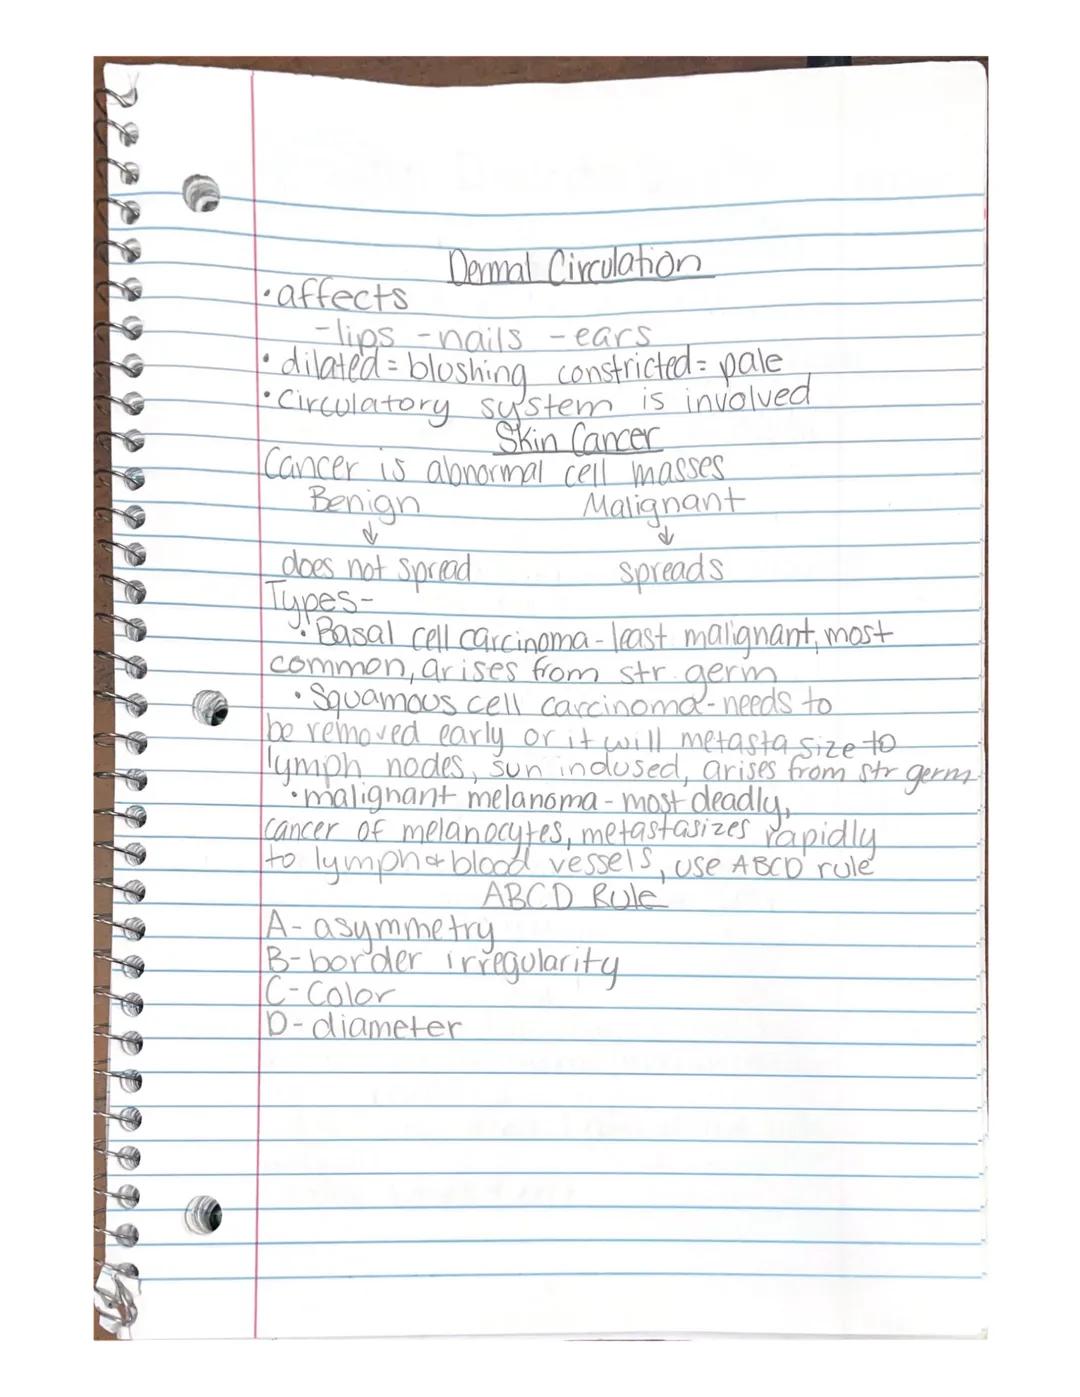 Dermal Circulation
• affects
- lips - nails - ears
• dilated = blushing constricted = pale
• Circulatory system is involved
Skin Cancer
Cancer is abnormal cell masses
Benign Malignant
↓ ↓
does not spread spreads
Types-
• Basal cell carcinoma - least malignant, most
common, arises from str. germ
• Squamous cell carcinoma - needs to
be removed early or it will metastasize to
lymph nodes, sun indused, arises from str germ
• malignant melanoma - most deadly,
cancer of melanocytes, metastasizes rapidly
to lymph & blood vessels, use ABCD rule
ABCD Rule
A- asymmetry
B- border irregularity
C- Color
D- diameter